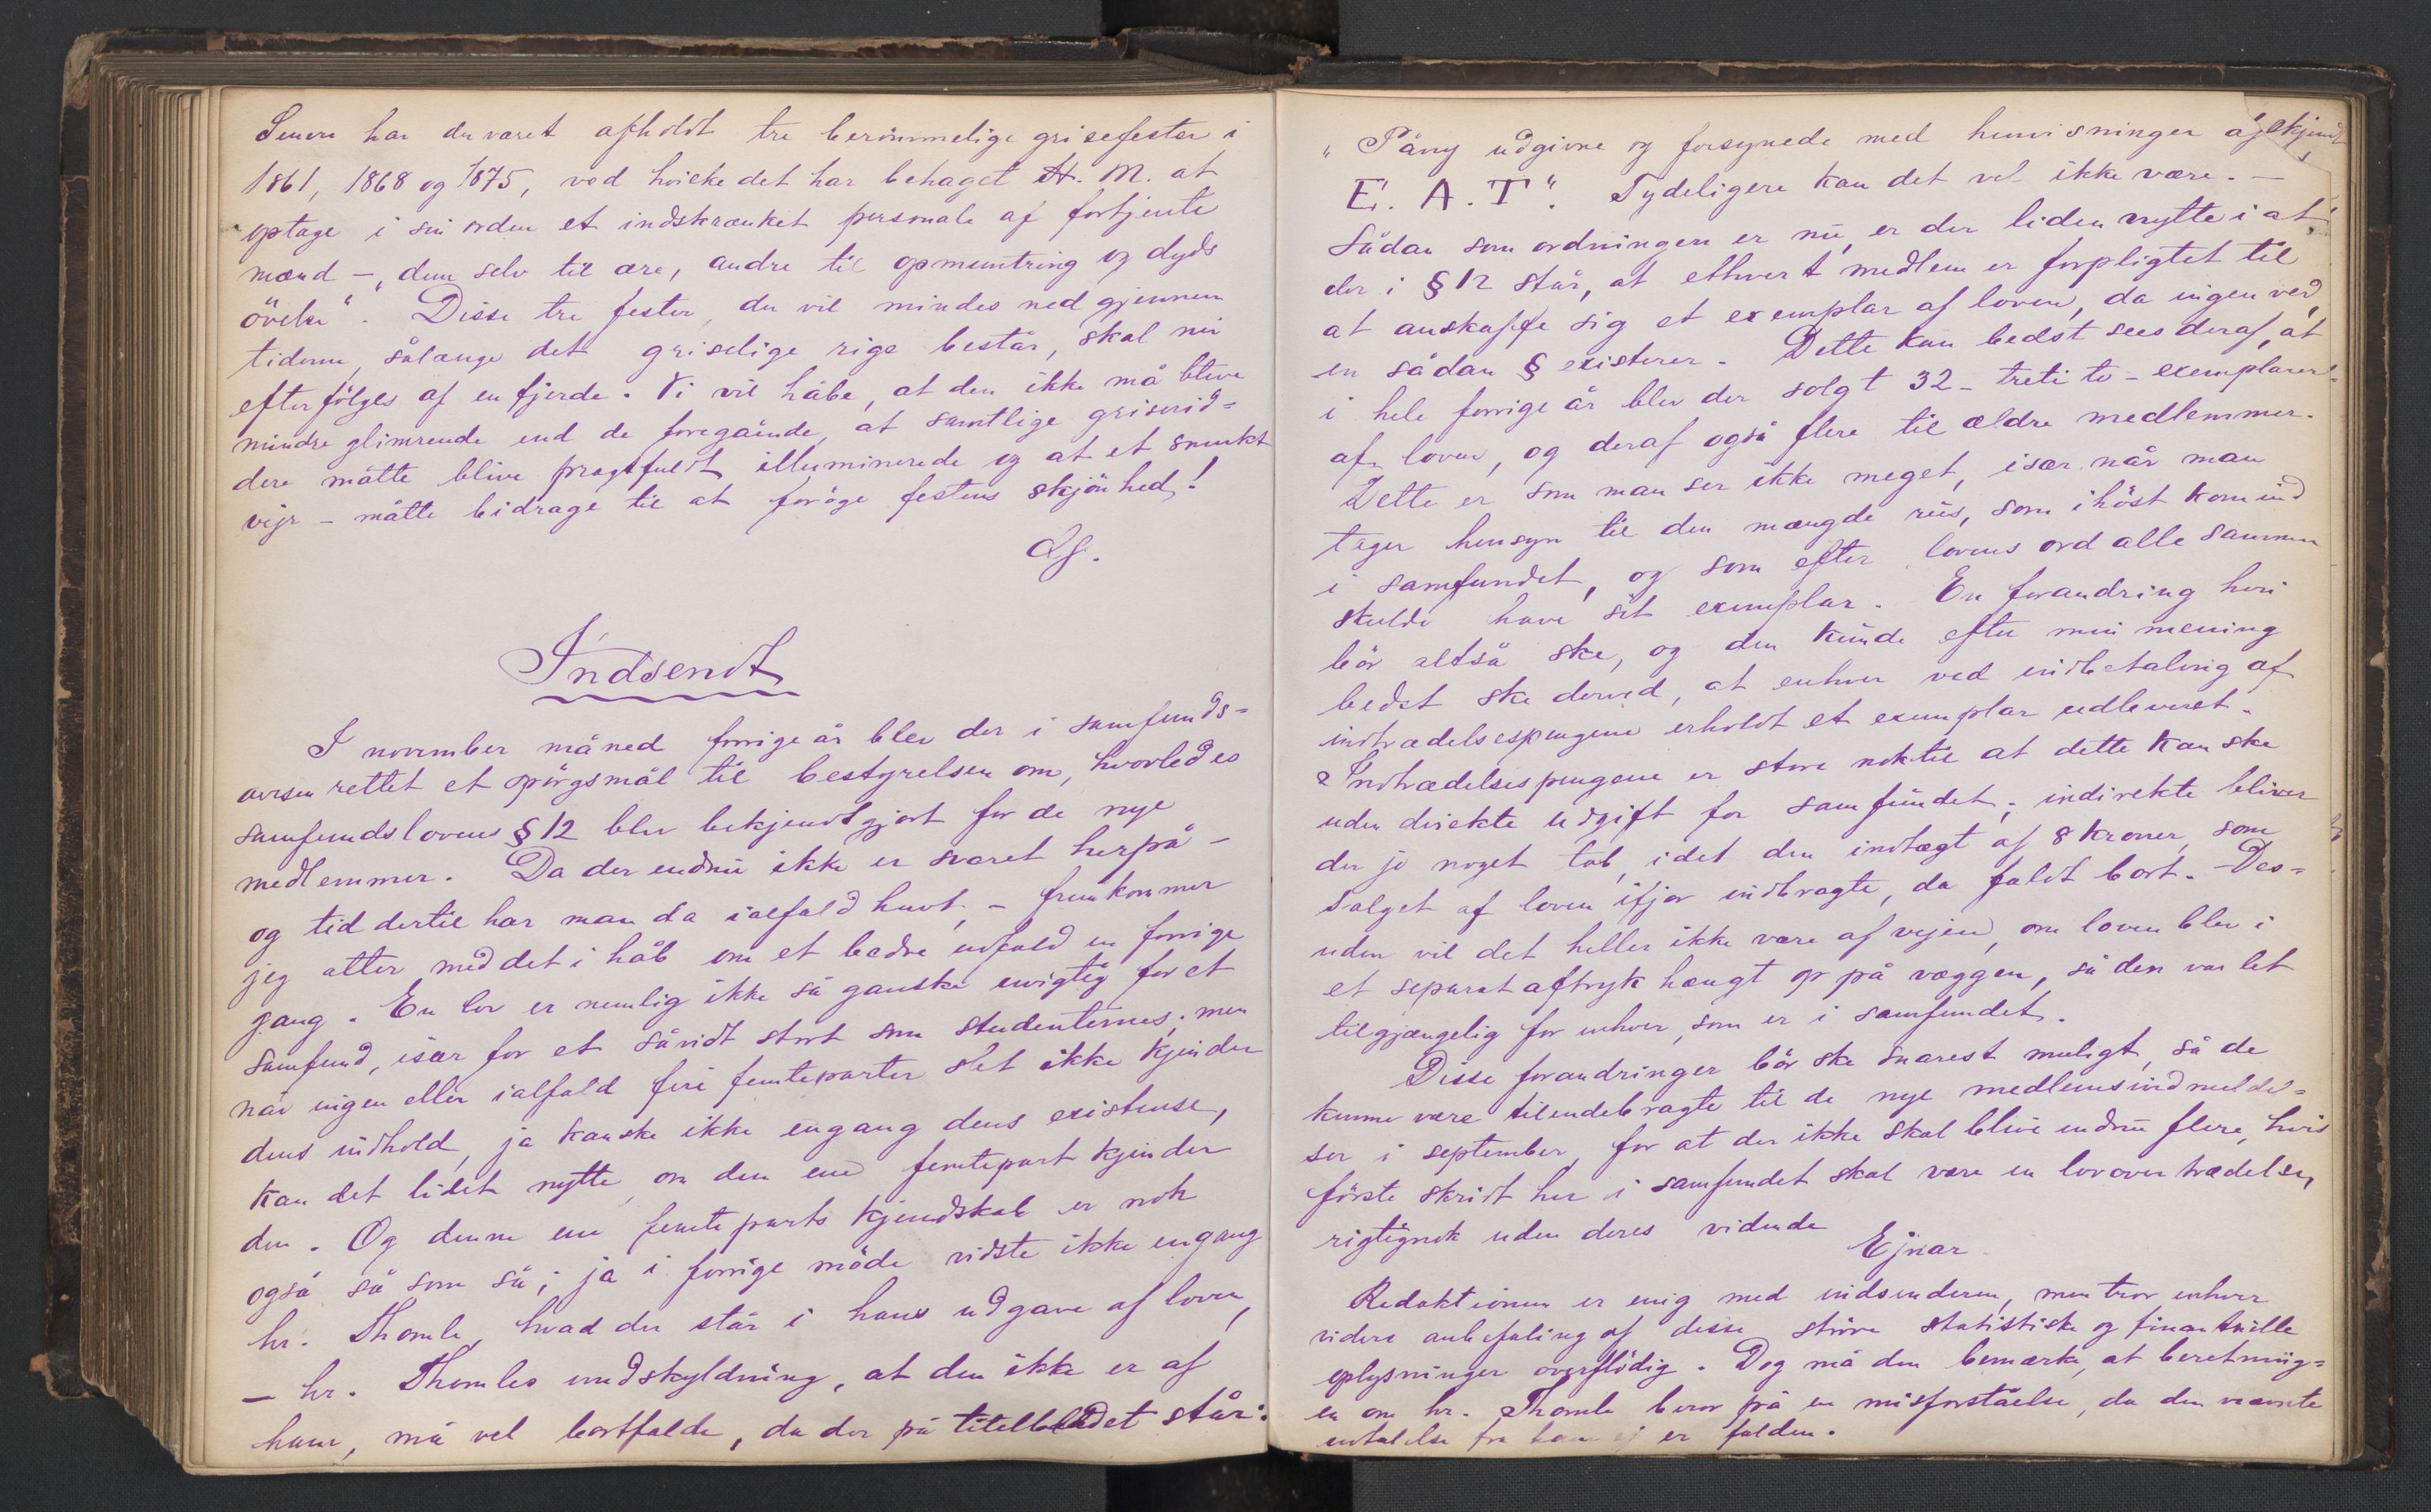 Senere har der været afholdt tre berömmelige grisefester i
1861, 1868 og 1875, ved hvilke det har behaget H. M. at
optage i sin orden et indskrænket personale af fortjente
mænd –, „dem selv til ære, andre til opmuntring og dyds
övelse“. Disse tre fester, der vil mindes ned gjennem
tiderne, sålænge det griselige rige består, skal nu
efterfölges af en fjerde. Vi vil håbe, at den ikke må blive
mindre glimrende end de foregående, at samtlige griserid=
dere måtte blive pragtfuldt illuminerede og at et smukt
vejr – måtte bidrage til at foröge festens skjönhed!
Indsendt
I november måned forrige år blev der i samfunds=
avisen rettet et spörgsmål til bestyrelsen om, hvorledes
samfundslovens § 12 blev bekjendtgjort for de nye
medlemmer. Da der endnu ikke er svaret herpå –
og tid dertil har man da ialfald havt, – fremkommer
jeg atter med det i håb om et bedre udfald en forrige
gang. En lov er nemlig ikke så ganske uvigtig for et
samfund, især for et såvidt stort som studenternes; men
når ingen eller ialfald fire femteparter slet ikke kjender
dens indhold, ja kanske ikke engang dens existense,
kan det lidet nytte, om den ene femtepart kjender
den. Og denne ene femteparts kjendskab er nok
også så som så; ja i forrige möde vidste ikke engang
hr. Thomle, hvad der står i hans udgave af loven,
– hr. Thomles undskyldning, at den ikke er af
ham, må vel bortfalde, da der på titelbladet står:
„Påny udgivne og forsynede med henvisninger af
E. A. T“. Tydeligere kan det vel ikke være. –
Sådan som ordningen er nu, er der liden nytte i at
der i § 12 står, at ethvert medlem er forpligtet til
at anskaffe sig et exemplar af loven, da ingen ved,
en sådan § existerer. Dette kan bedst sees deraf, at
i hele forrige år blev der solgt 32 – treti to – exemplarer
af loven, og deraf også flere til ældre medlemmer.
Dette er som man ser ikke meget, især når man
tager hensyn til den mængde rus, som i höst kom ind
i samfundet, og som efter lovens ord alle sammen
skulde have sit exemplar. En forandring heri
bör altså ske, og den kunde efter min mening
bedst ske derved, at enhver ved indbetaling af
indtrædelsespengene erholdt et exemplar udleveret.
Indtrædelsespengene er store nok til at dette kan ske
uden direkte udgift for samfundet; indirekte bliver
der jo noget tab, idet den indtægt af 8 kroner, som
salget af loven ifjor indbragte, da faldt bort. – Des=
uden vil det heller ikke være af vejen, om loven blev i
et separat aftryk hængt op på væggen, så den var let
tilgjængelig for enhver, som er i samfundet.
Disse forandringer bör ske snarest muligt, så de
kunne være tilendebragte til de nye medlemsindmeldel=
ser i september, for at der ikke skal blive endnu flere, hvis
förste skridt her i samfundet skal være en lovovertrædelse,
rigtignok uden deres vidende
Ejnar.
Redaktionen er enig med indsenderen, men tror enhver
videre anbefaling af disse större statistiske og finantsielle
oplysninger overflödig. Dog må den bemærke, at beretning=
en om hr. Thomle beror på en misforståelse, da den nævnte
udtalelse fra ham ej er falden.